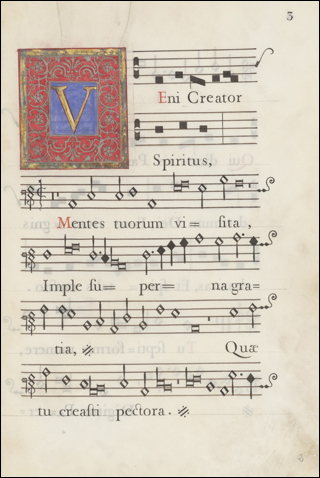 3
VEni Creator
Spiritus,
Mentes tuorum vi= sita,
Imple su= per= na gra=
tia, Quæ
tu creasti pectora.